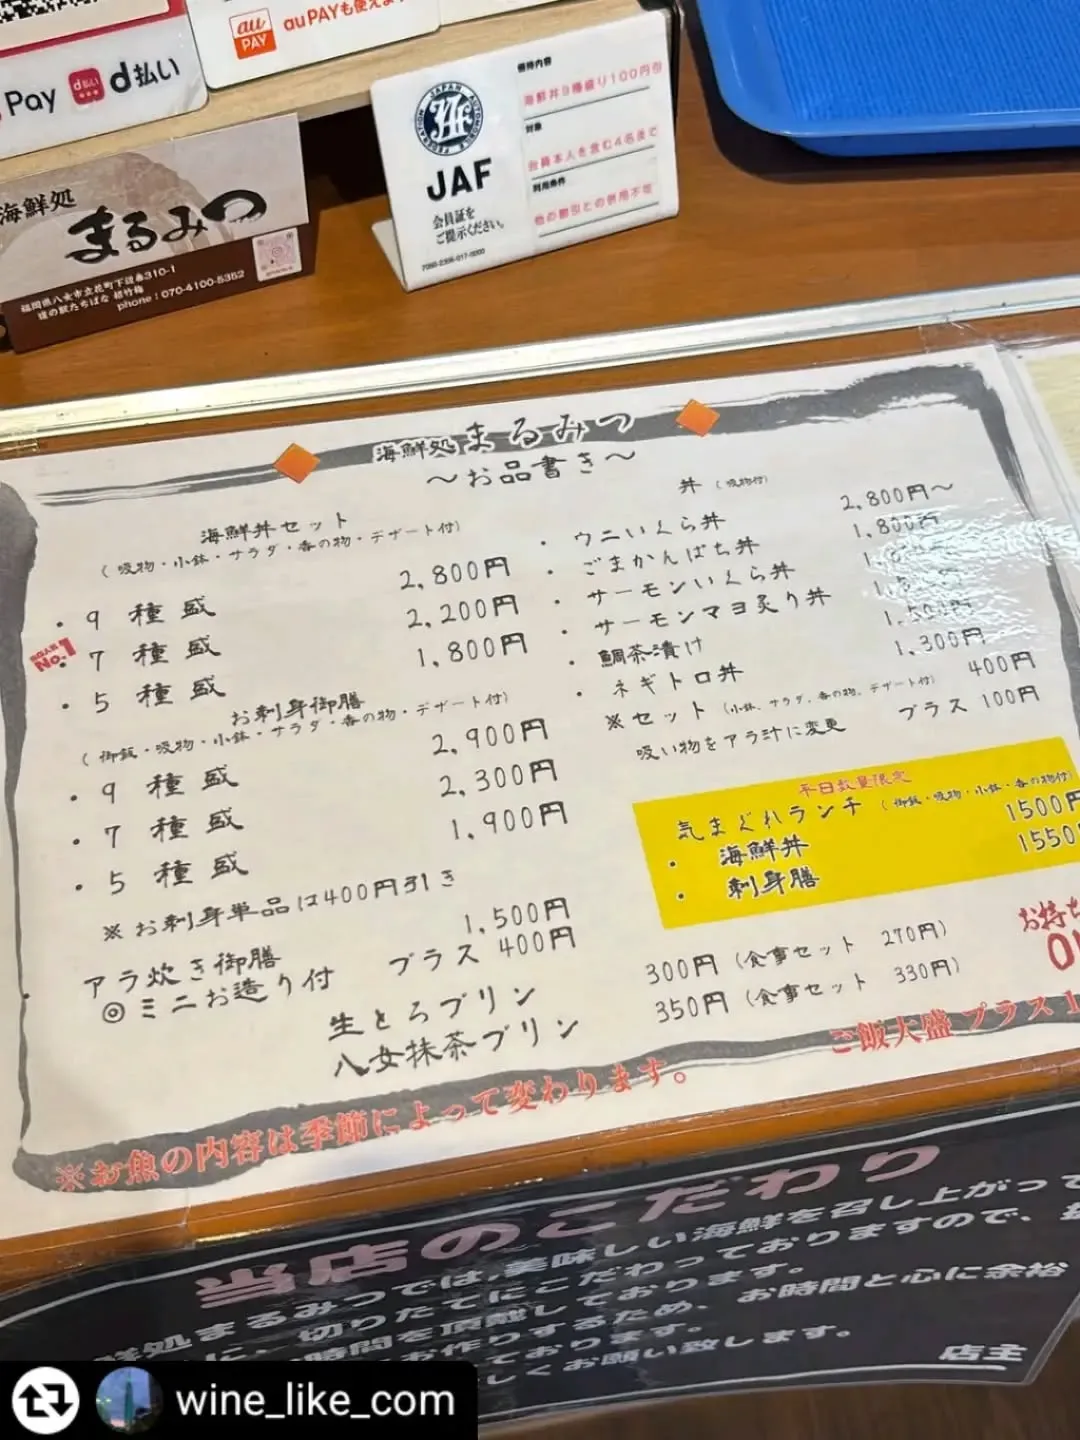 Pay d払い d払い
au PAY au PAYも使えます
JAPAN AUTOMOBILE FEDERATION
JAF
会員証を
ご提示ください。
優待内容
海鮮丼9種盛り100円引
対象
会員本人を含む4名まで
利用条件
他の割引との併用不可
海鮮処
まるみつ
phone:070-4100-5352
海鮮処 まるみつ
～お品書き～
海鮮丼セット
(吸物・小鉢・サラダ・香の物・デザート付)
・9種盛 2,800円
No.1
・7種盛 2,200円
・5種盛 1,800円
お刺身御膳
(御飯・吸物・小鉢・サラダ・香の物・デザート付)
・9種盛 2,900円
・7種盛 2,300円
・5種盛 1,900円
※お刺身単品は400円引き
アラ炊き御膳 1,500円
◎ミニお造り付 プラス400円
丼(吸物付)
・ウニいくら丼 2,800円～
・ごまかんぱち丼 1,800円
・サーモンいくら丼
・サーモンマヨ炙り丼
・鯛茶漬け 1,500円
・ネギトロ丼 1,300円
※セット(小鉢、サラダ、香の物、デザート付) 400円
吸い物をアラ汁に変更 プラス100円
平日数量限定
気まぐれランチ(御飯・吸物・小鉢・香の物付)
・海鮮丼 1500円
・刺身膳 1550
生とろプリン 300円(食事セット 270円)
八女抹茶プリン 350円(食事セット 330円)
お持ち
ご飯大盛プラス1
※お魚の内容は季節によって変わります。
当店のこだわり
鮮処まるみつでは、美味しい海鮮を召し上がって
に、切りたてにこだわっておりますので、
時間を頂戴しております。
お作りするため、お時間と心に余裕
ております。
しくお願い致します。
店主
wine_like_com